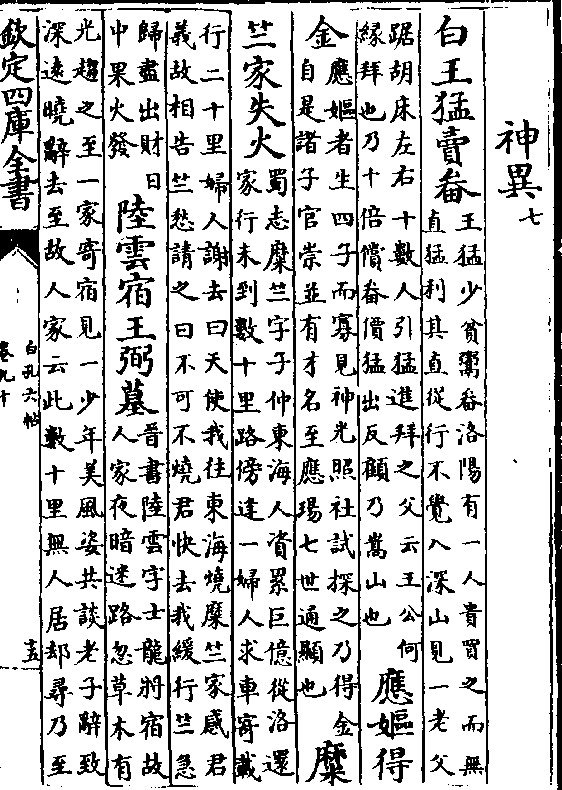 神異七
白王猛賣畚王猛少貧鬻畚洛陽有一人貴買之而無
直猛利其直從行不覺入深山見一老父
踞胡床左右十數人引猛進拜之父云王公何
緣拜也乃十倍償畚價猛出反顧乃嵩山也應嫗得
金應嫗者生四子而寡見神光照社試探之乃得金
自是諸子官崇並有才名至應瑒七世通顯也糜
竺家失火蜀志糜竺字子仲東海人資累巨億從洛還
家行未到數十里路傍逢一婦人求車寄載
行二十里婦人謝去曰天使我往東海燒糜竺家感君
義故相告竺愁請之曰不可不燒君快去我緩行竺急
歸盡出財日
中果火發陸雲宿王弼墓晉書陸雲字士龍將宿故
人家夜暗迷路忽草木有
光趨之至一家寄宿見一少年美風姿共談老子辭致
深遠曉辭去至故人家云此數十里無人居却尋乃至
欽定四庫全書
白孔六帖
卷九十
十五